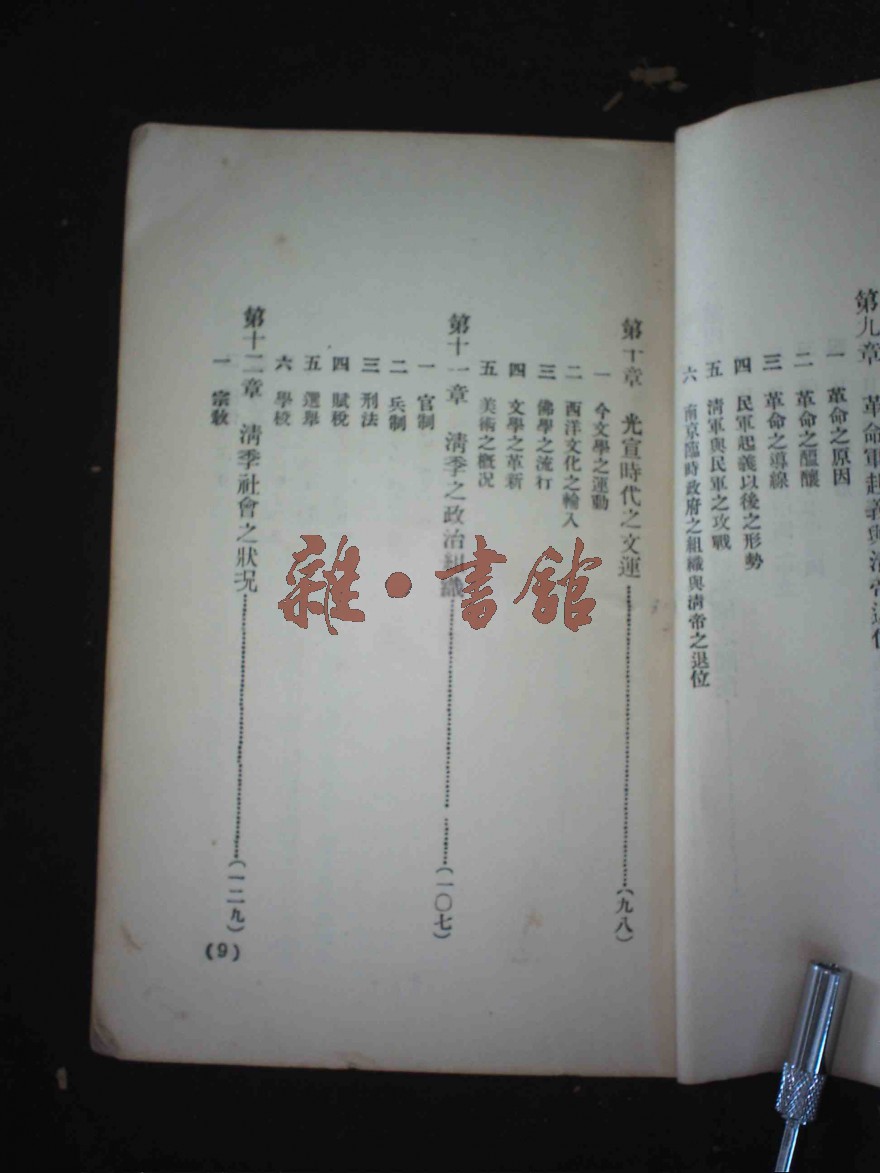 第九章 革命軍起義與清帝退位
一 革命之原因
二 革命之醞釀
三 革命之導線
四 民軍起義以後之形勢
五 清軍與民軍之攻戰
六 南京臨時政府之組織與清帝之退位
第十章 光宣時代之文運……(九八)
一 今文學之運動
二 西洋文化之輸入
三 佛學之流行
四 文學之革新
五 美術之概况
第十一章 清季之政治組織……(一〇七)
一 官制
二 兵制
三 刑法
四 賦稅
五 選舉
六 學校
第十二章 清季社會之狀况……(一二九)
一 宗教
(9)
雜·書館